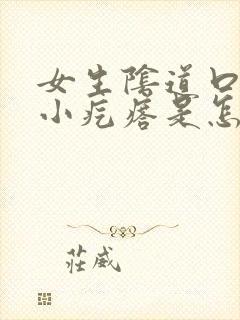 女生陰道口
小疙瘩是怎
莊威